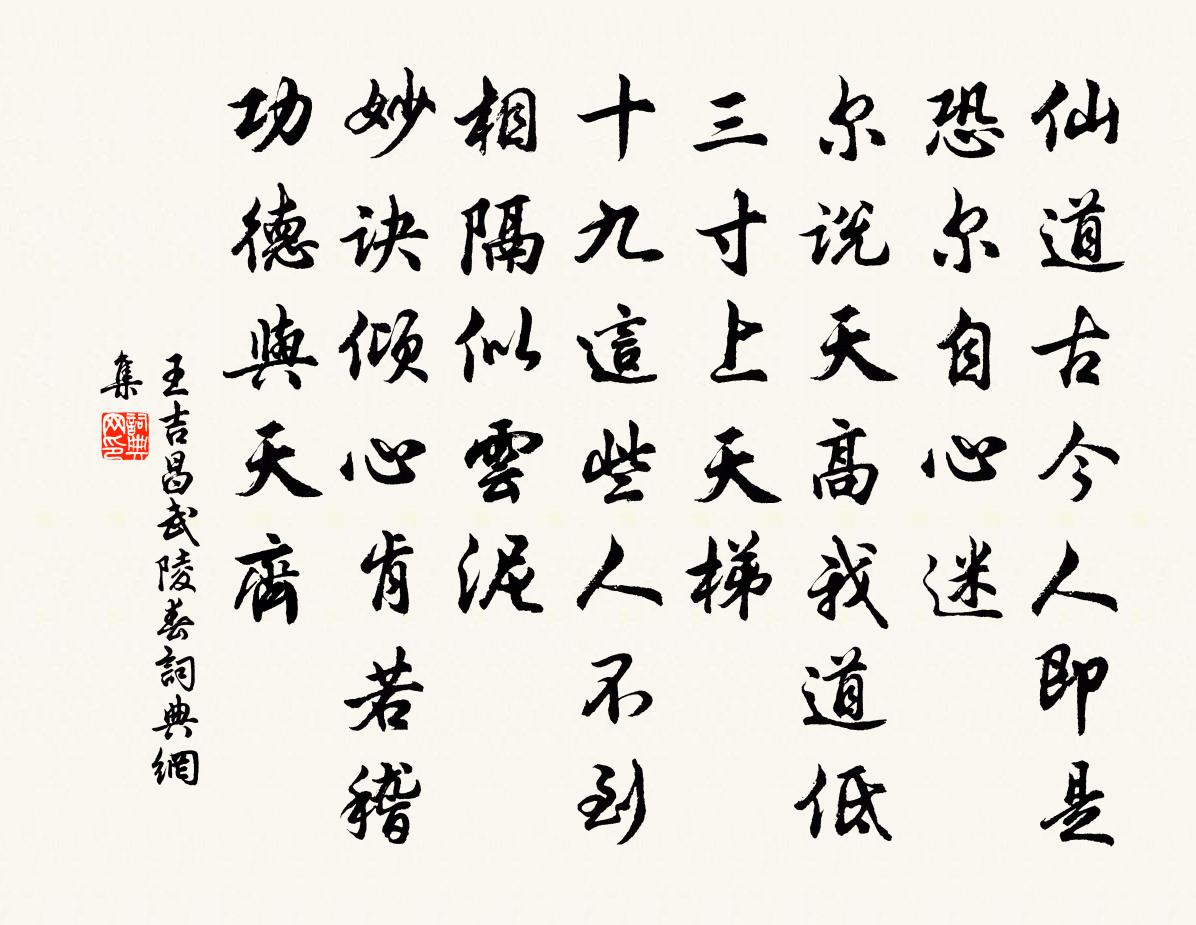 仙道古今人即是
恐尔自心迷
尔说天高我道低
三寸上天梯
十九這些人不到
相隔似雲泥
妙诀倾心肯若稽
功德與天齊
王吉昌武陵春詞典網
集
詞典
网印